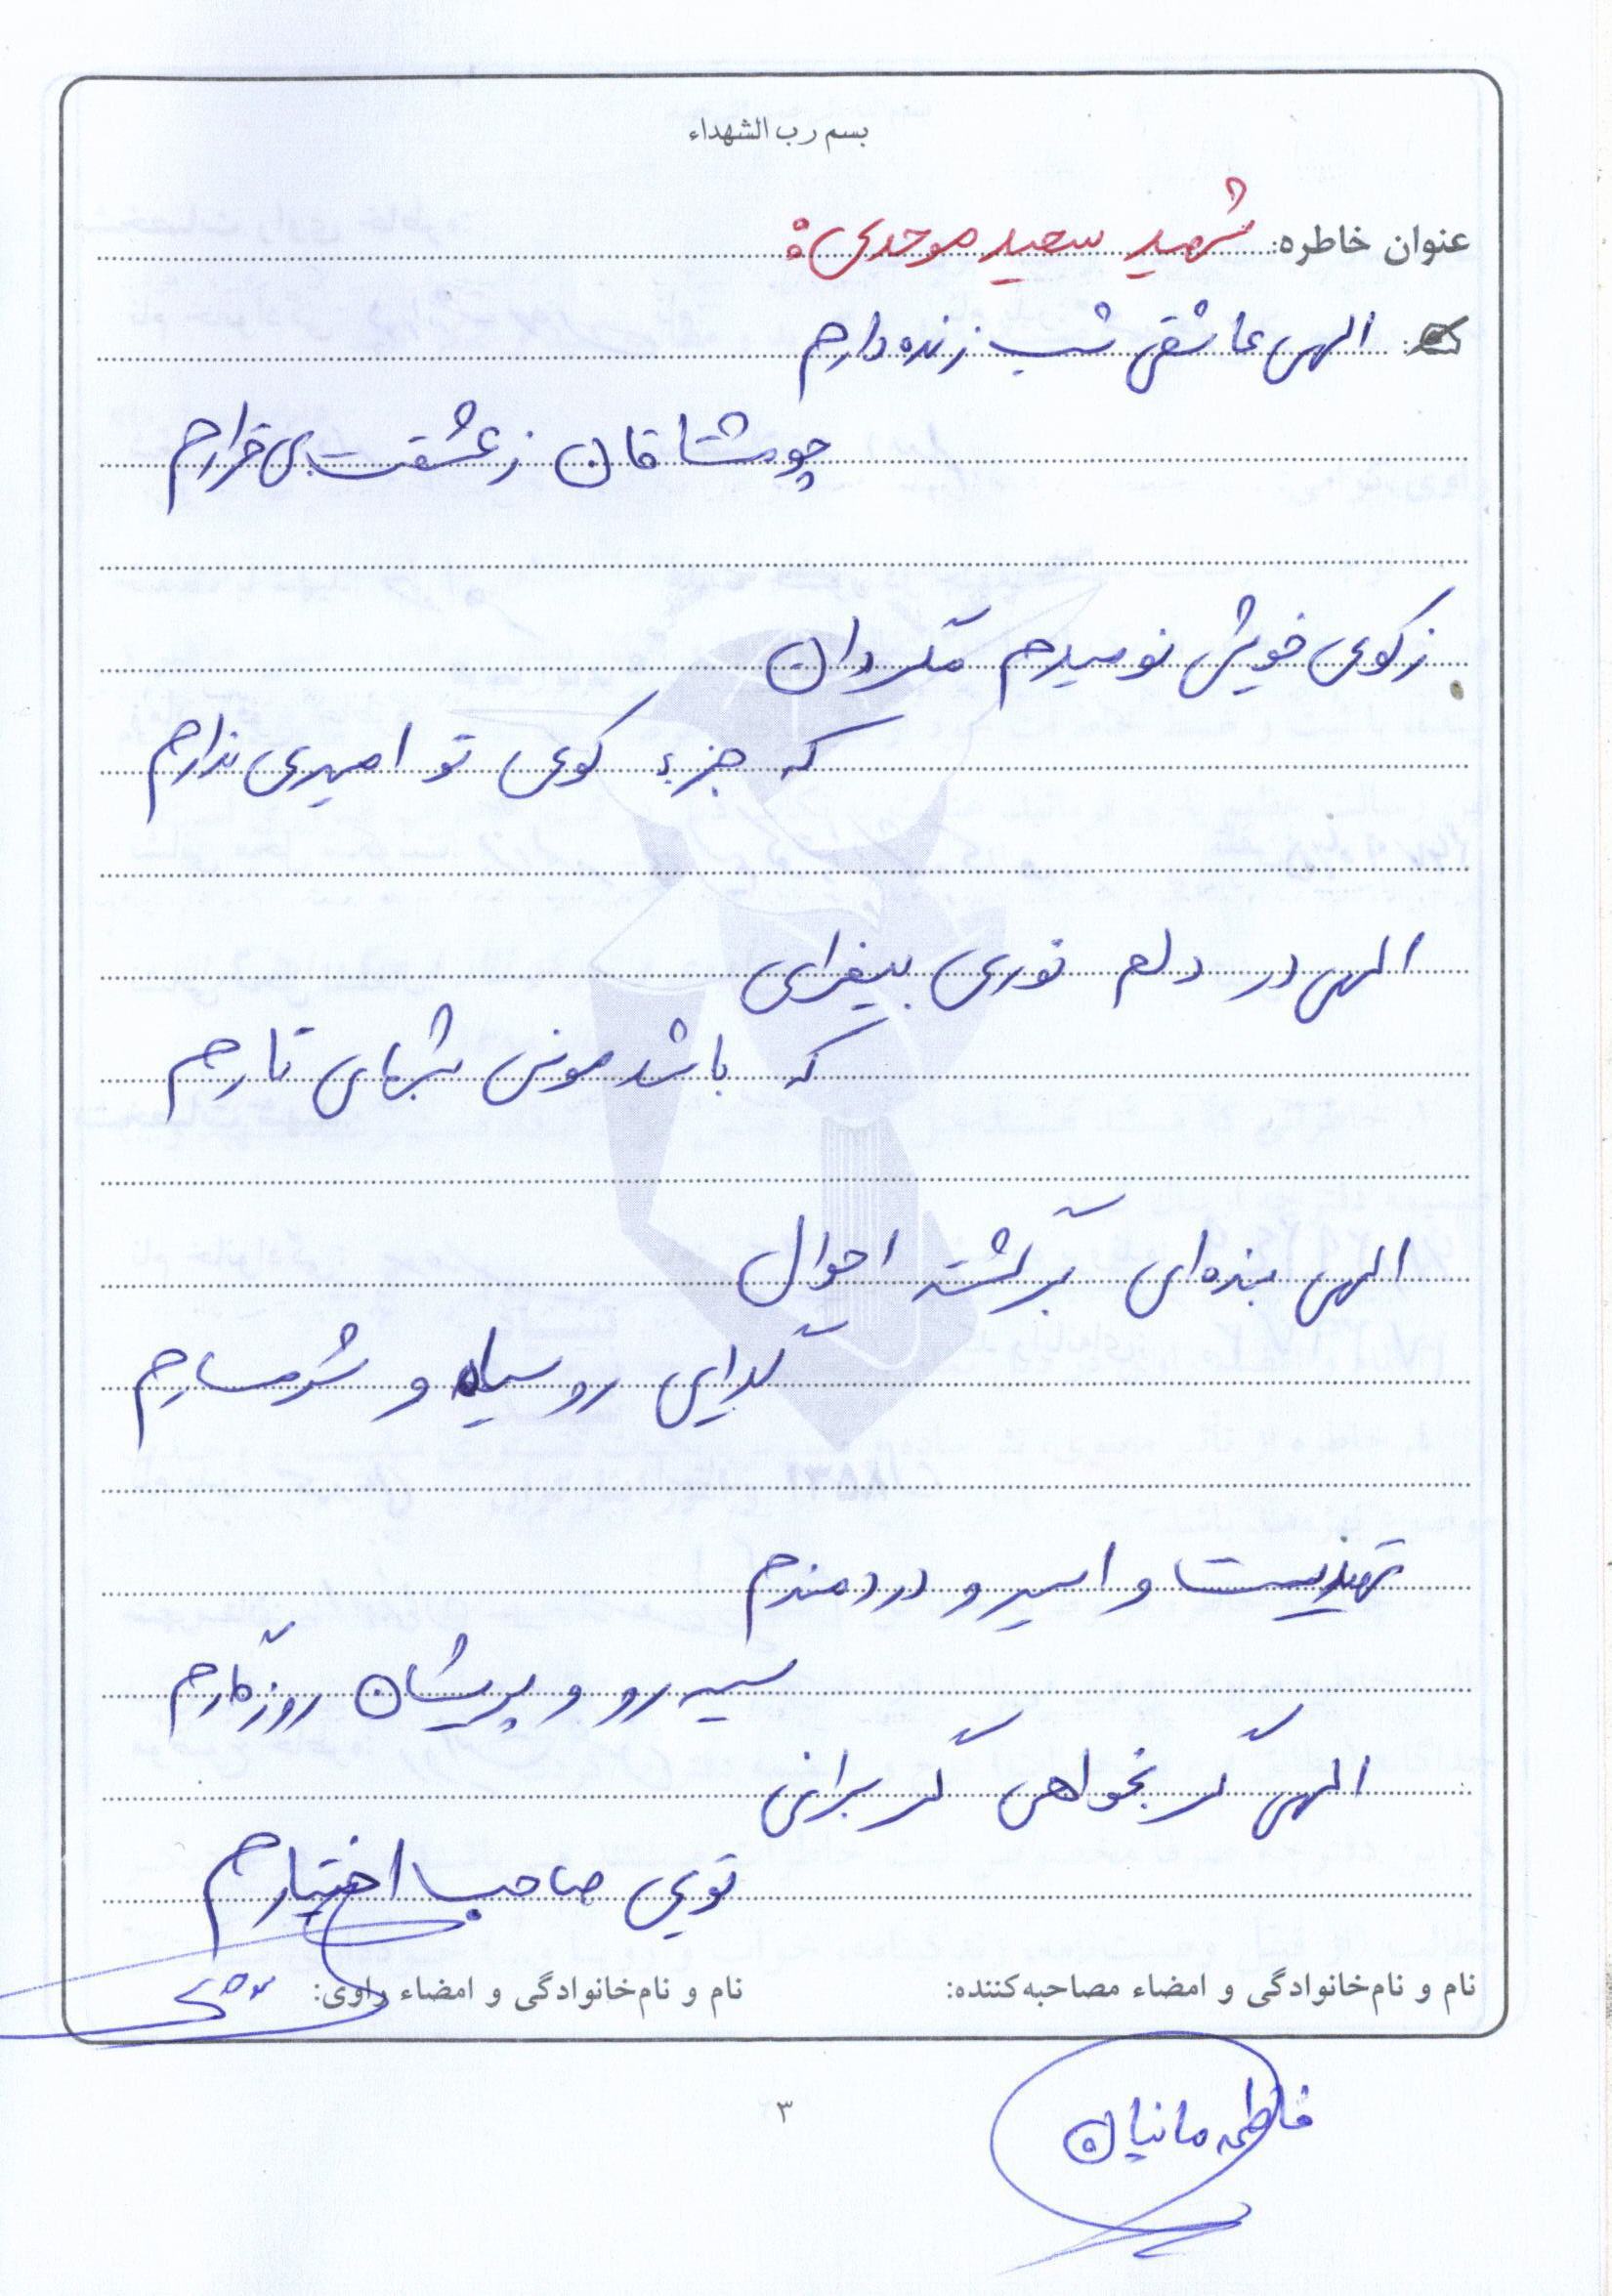 بسم رب الشهداء
عنوان خاطره: شهید سعید موحدی:
الهی عاشقی شب زنده دارم
چو مشتاقان ز عشقت بی قرارم
ز کوی خویش نومیدم مگردان
که جزء کوی تو امیدی ندارم
الهی در دلم نوری بیفزای
که باشد مونس شبهای تارم
الهی بنده‌ای برگشته احوال
گدایی رو سیاه و شرمسارم
تهیدست و اسیر و دردمندم
سیه رو و پریشان روزگارم
الهی گر بخواهی گر برانی
تویی صاحب اختیارم
نام و نام‌خانوادگی و امضاء مصاحبه‌کننده: نام و نام‌خانوادگی و امضاء راوی:
فاطمه مانیان
۳